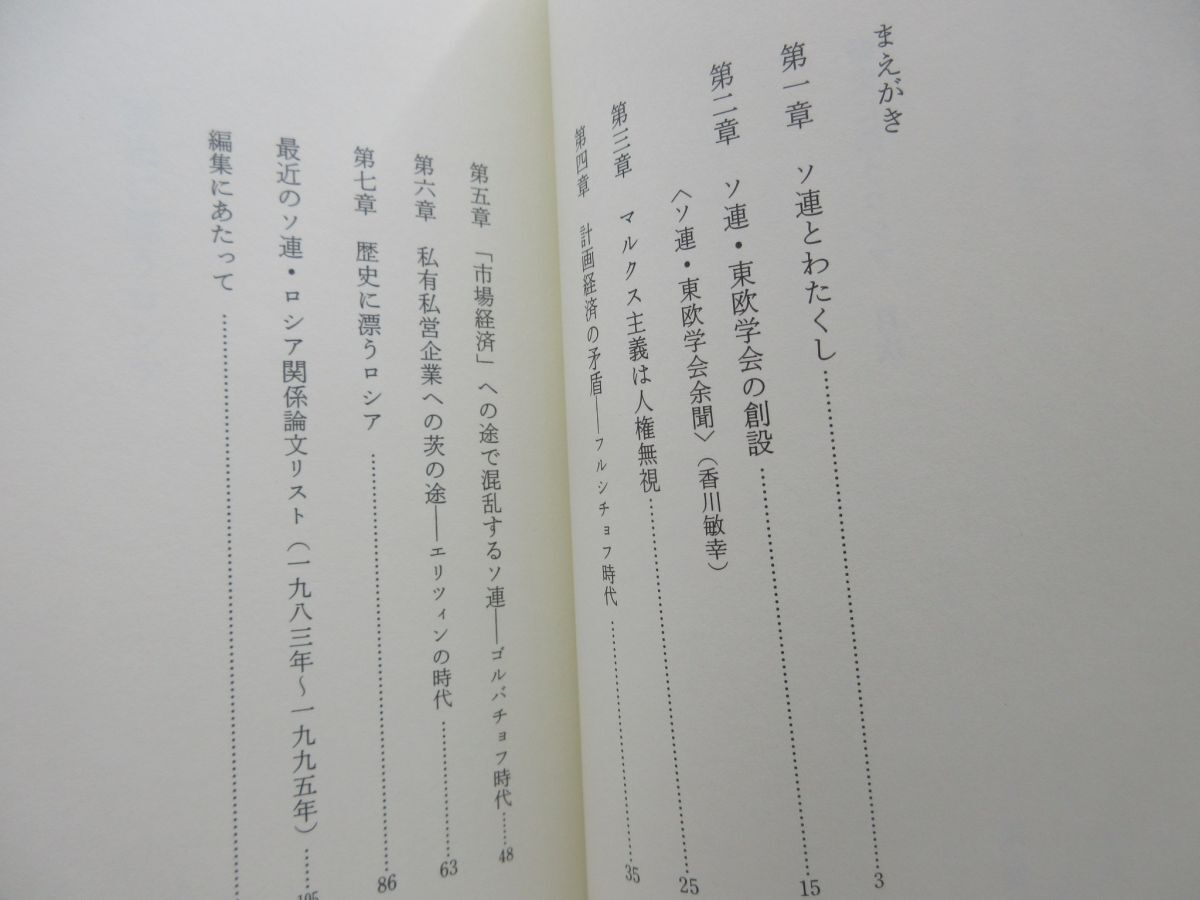 まえがき
第一章　ソ連とわたくし……………3
第二章　ソ連・東欧学会の創設……………15
〈ソ連・東欧学会余聞〉（香川敏幸）
第三章　マルクス主義は人権無視……………25
第四章　計画経済の矛盾――フルシチョフ時代……………35
第五章　「市場経済」への途で混乱するソ連――ゴルバチョフ時代……48
第六章　私有私営企業への茨の途――エリツィンの時代……………63
第七章　歴史に漂うロシア……………86
最近のソ連・ロシア関係論文リスト（一九八三年～一九九五年）……105
編集にあたって……………